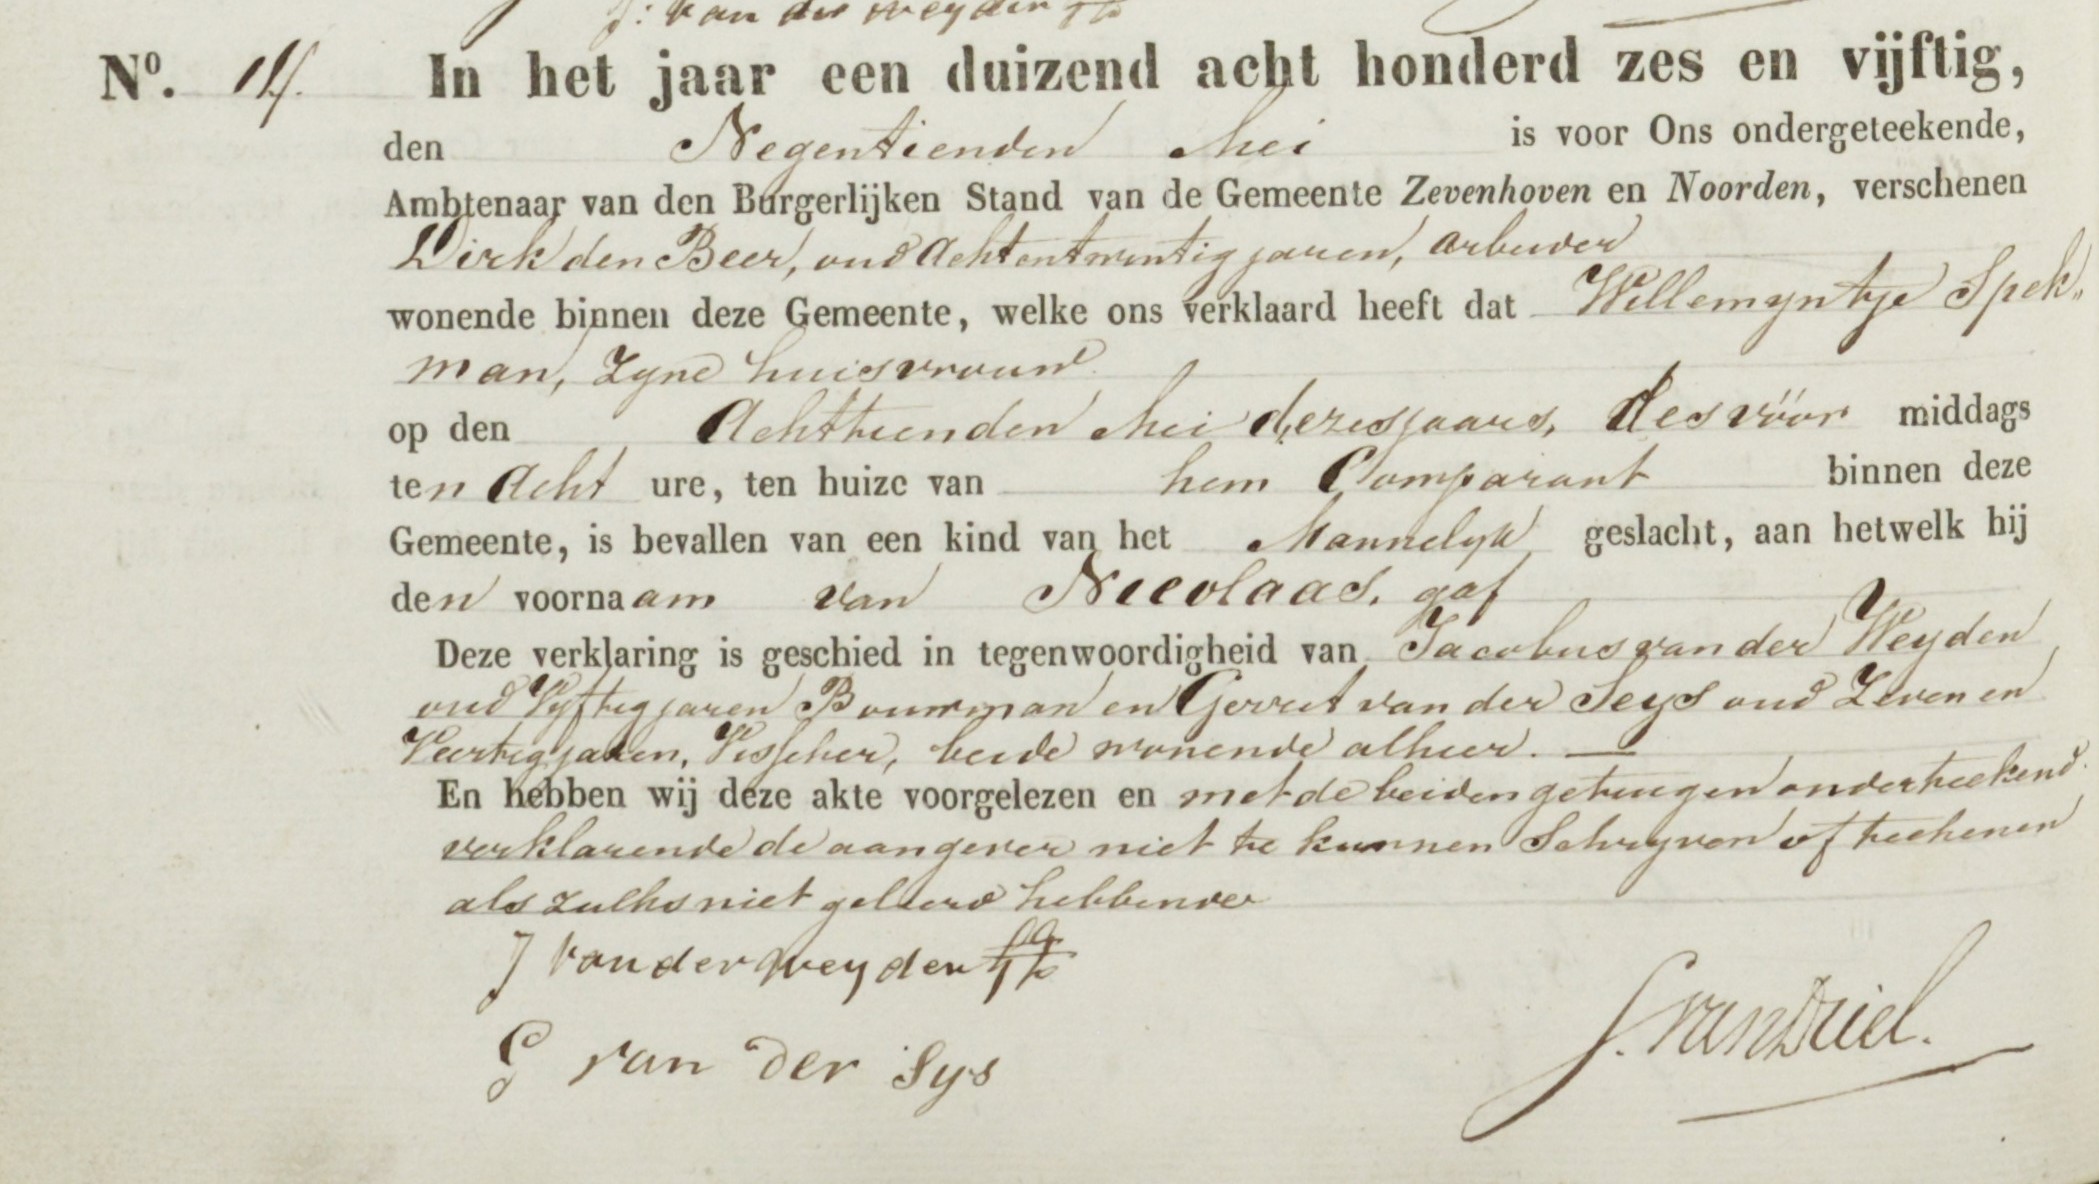 J: van der weyden
No. 14. In het jaar een duizend acht honderd zes en vijftig,
den Negentienden Mei is voor Ons ondergeteekende,
Ambtenaar van den Burgerlijken Stand van de Gemeente Zevenhoven en Noorden, verschenen
Dirk den Beer, oud Achtentwintig jaren, arbeider
wonende binnen deze Gemeente, welke ons verklaard heeft dat Willemyntje Spek„
man, Zyne huisvrouw
op den Achttienden Mei dezesjaars, des vöor middags
ten Acht ure, ten huize van hem Comparant binnen deze
Gemeente, is bevallen van een kind van het Mannelyk geslacht, aan hetwelk hij
den voornaam van Nicolaas. gaf
Deze verklaring is geschied in tegenwoordigheid van Jacobus van der Weyden
oud Vyftig jaren Bouwman en Gerrit van der Seys oud Zeven en
Veertig jaren, Visscher, beide wonende alhier. —
En hebben wij deze akte voorgelezen en met de beiden getuigen onderteekend
verklarende de aangever niet te kunnen Schryven of teekenen
als zulks niet geleerd hebbende
J van der weyden
G van der Sys
J. van Driel.